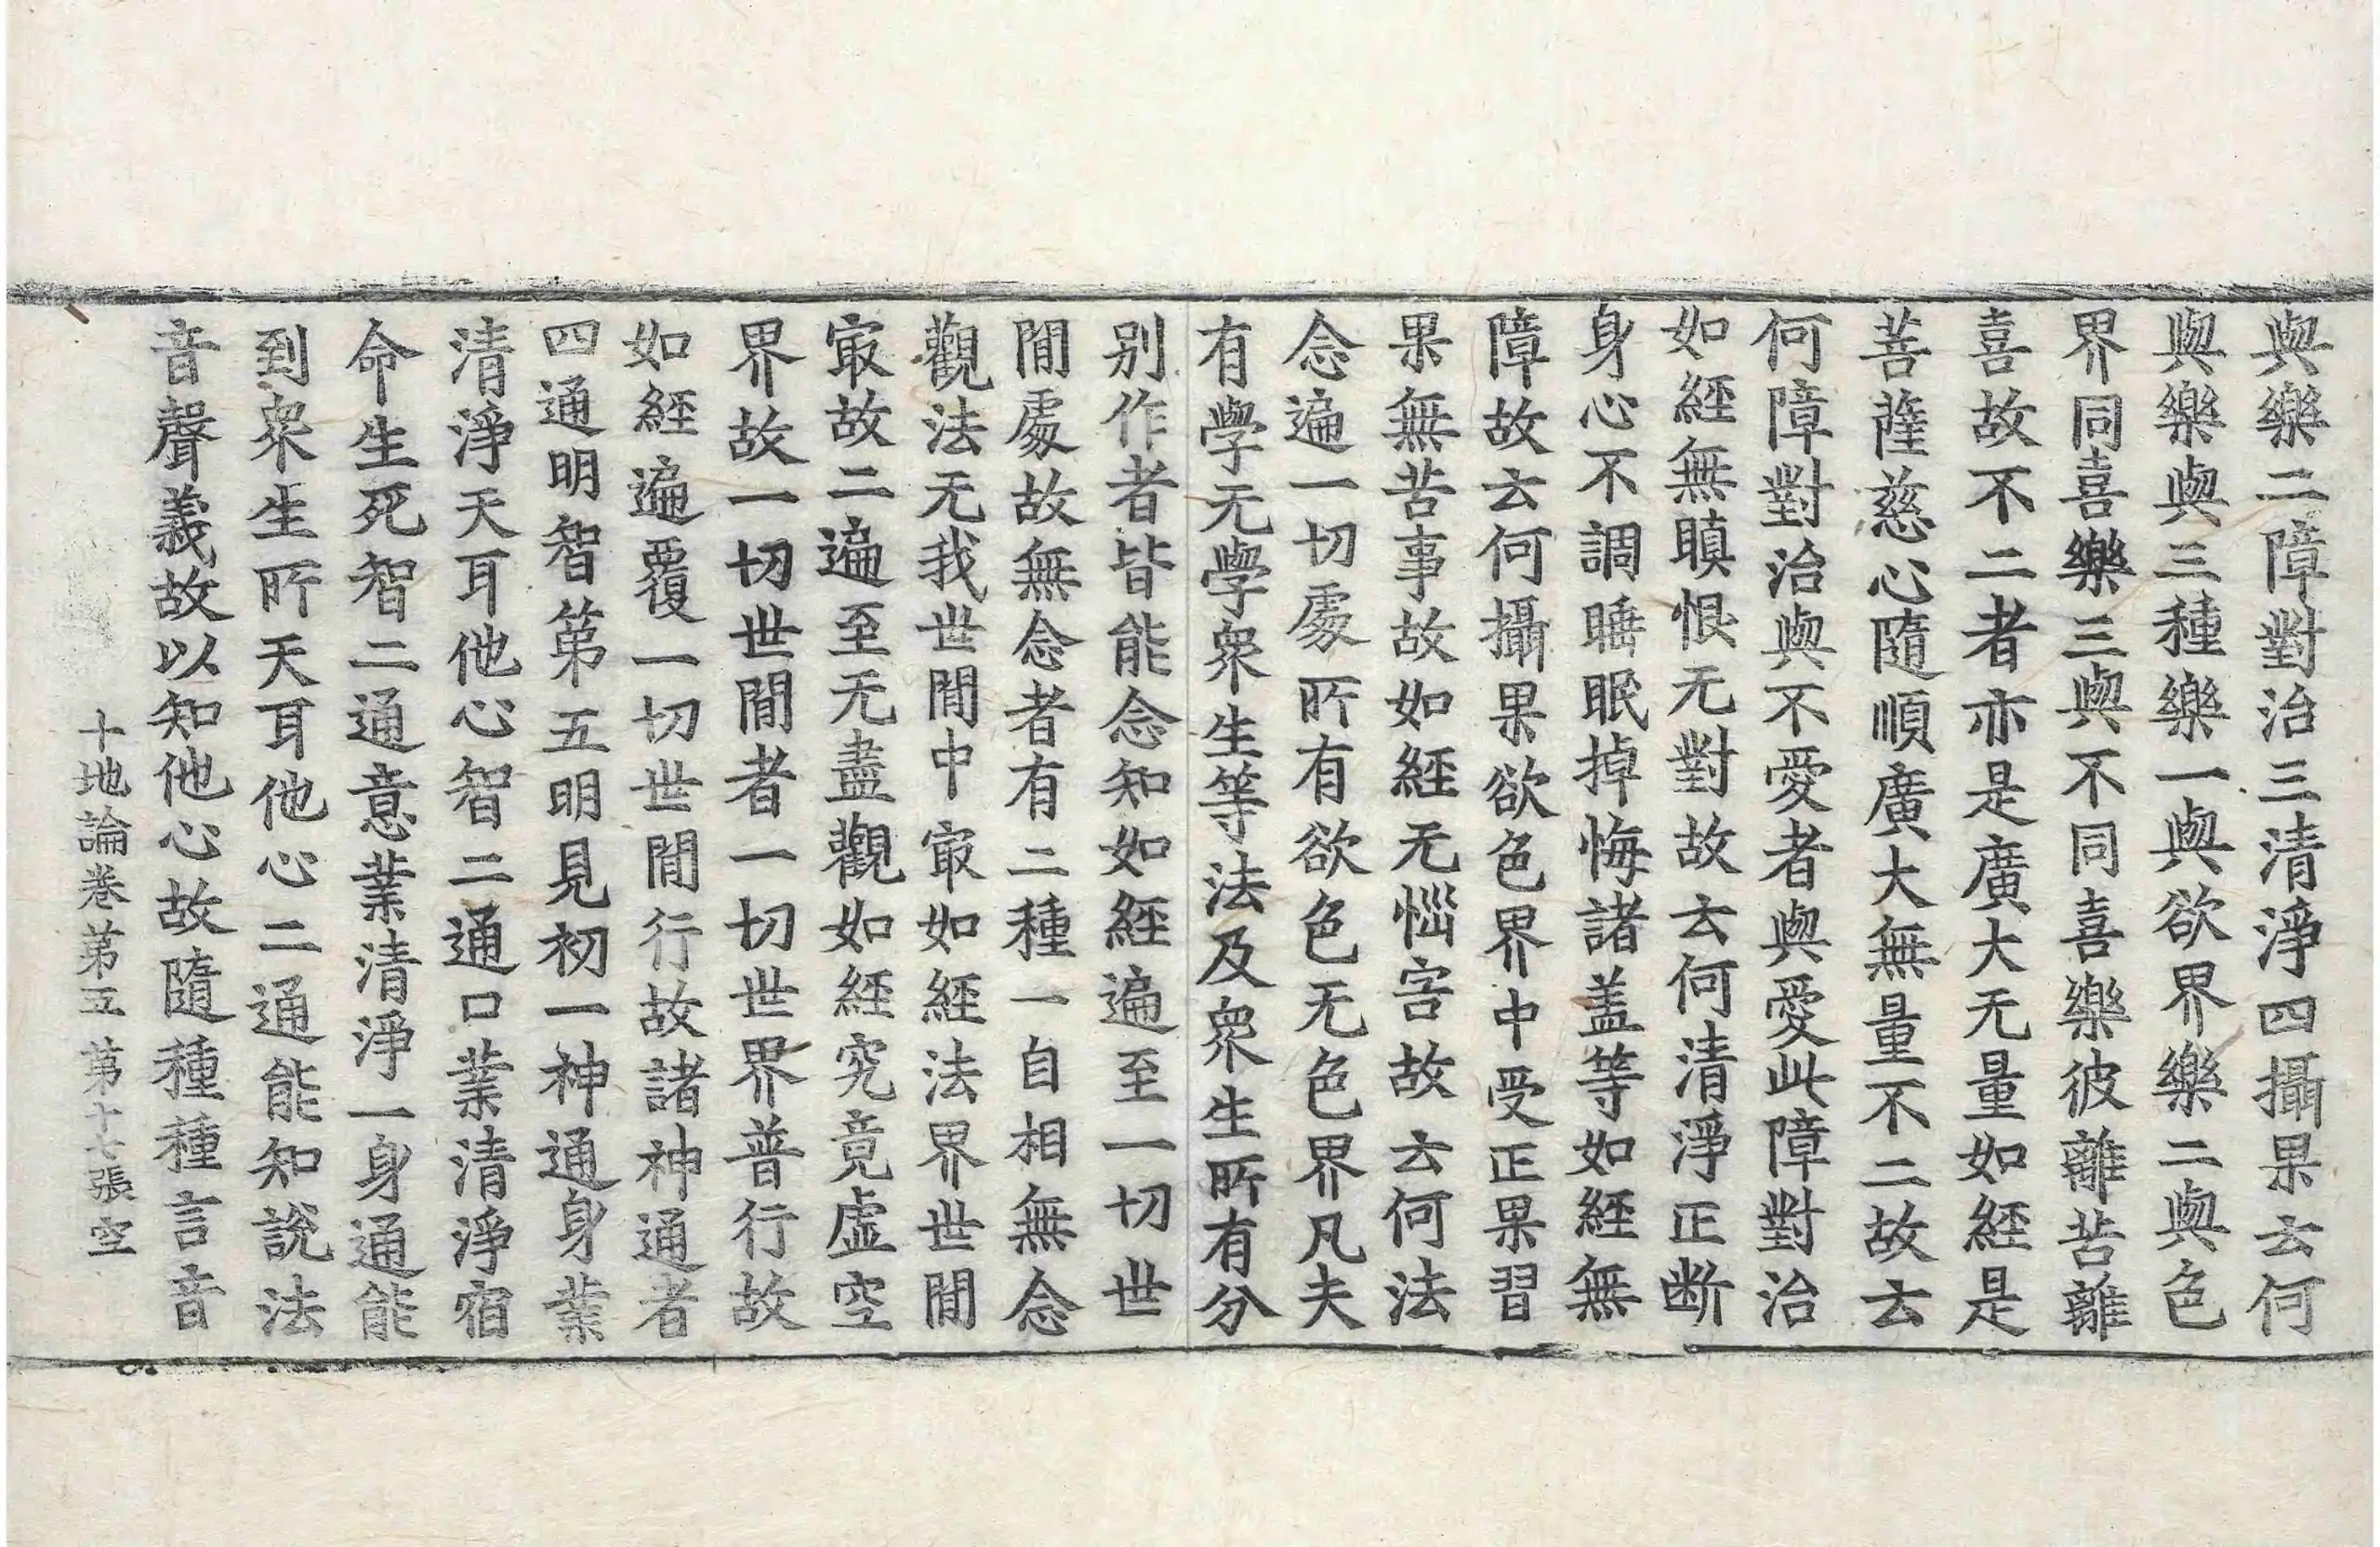 與樂二障對治三清淨四攝果云何
與樂與三種樂一與欲界樂二與色
界同喜樂三與不同喜樂彼離苦離
喜故不二者亦是廣大无量如經是
菩薩慈心隨順廣大無量不二故云
何障對治與不愛者與愛此障對治
如經無瞋恨无對故云何清淨正断
身心不調睡眠掉悔諸盖等如經無
障故云何攝果欲色界中受正果習
果無苦事故如經无惱害故云何法
念遍一切處所有欲色无色界凡夫
有學无學衆生等法及衆生所有分
别作者皆能念知如經遍至一切世
閒處故無念者有二種一自相無念
觀法无我世閒中㝡如經法界世閒
㝡故二遍至无盡觀如經究竟虛空
界故一切世閒者一切世界普行故
如經遍覆一切世閒行故諸神通者
四通明智第五明見初一神通身業
清淨天耳他心智二通口業清淨宿
命生死智二通意業清淨一身通能
到衆生所天耳他心二通能知說法
音聲義故以知他心故隨種種言音
十地論卷第五 第十七張 空